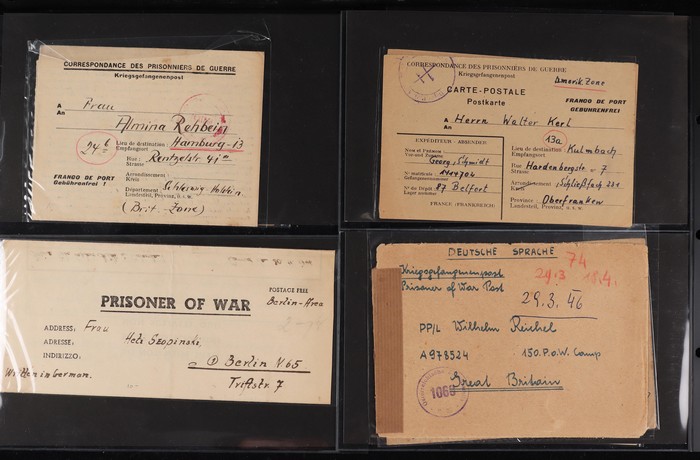 CORRESPONDANCE DES PRISONNIERS DE GUERRE
Kriegsgefangenenpost
A
An
Frau
Almina Rehbein
24b
Lieu de destination:
Empfangsort
Hamburg-13
Rue:
Strasse
Rentzelstr.
Arrondissement:
Kreis
Département:
Landesteil, Provinz, u.s.w.
Schleswig-Holstein
(Brit. Zone)
FRANCO DE PORT
Gebührenfrei !
CORRESPONDANCE DES PRISONNIERS DE GUERRE
Kriegsgefangenenpost
Amerik. Zone
CARTE-POSTALE
Postkarte
FRANCO DE PORT
GEBÜHRENFREI
A
An
Herrn Walter Kerl
13a
EXPÉDITEUR ABSENDER
Nom et Prénom
Vor-und Zuname
Georg Schmidt
Nº matricule
Gefangenennummer
1111704
Nº du Dépôt
Lager nummer
87 Belfort
FRANCE (FRANKREICH)
Lieu de destination:
Empfangsort
Kulmbach
Rue:
Strasse
Hardenbergstr. 7
Arrondissement
Kreis
Schließfach 221
Province:
Landesteil, Provinz, u.s.w.
Oberfranken
PRISONER OF WAR
POSTAGE FREE
Berlin-Area
ADDRESS:
ADRESSE:
INDIRIZZO:
Frau
Hete Szopinski
Berlin N65
Triftstr. 7
Written in German.
DEUTSCHE SPRACHE
74
Kriegsgefangenenpost
Prisoner of War Post
29.3
18.4.
29.3.46
PP/L Wilhelm Reichel
A978524 150.P.o.W. Camp
Great Britain
1065